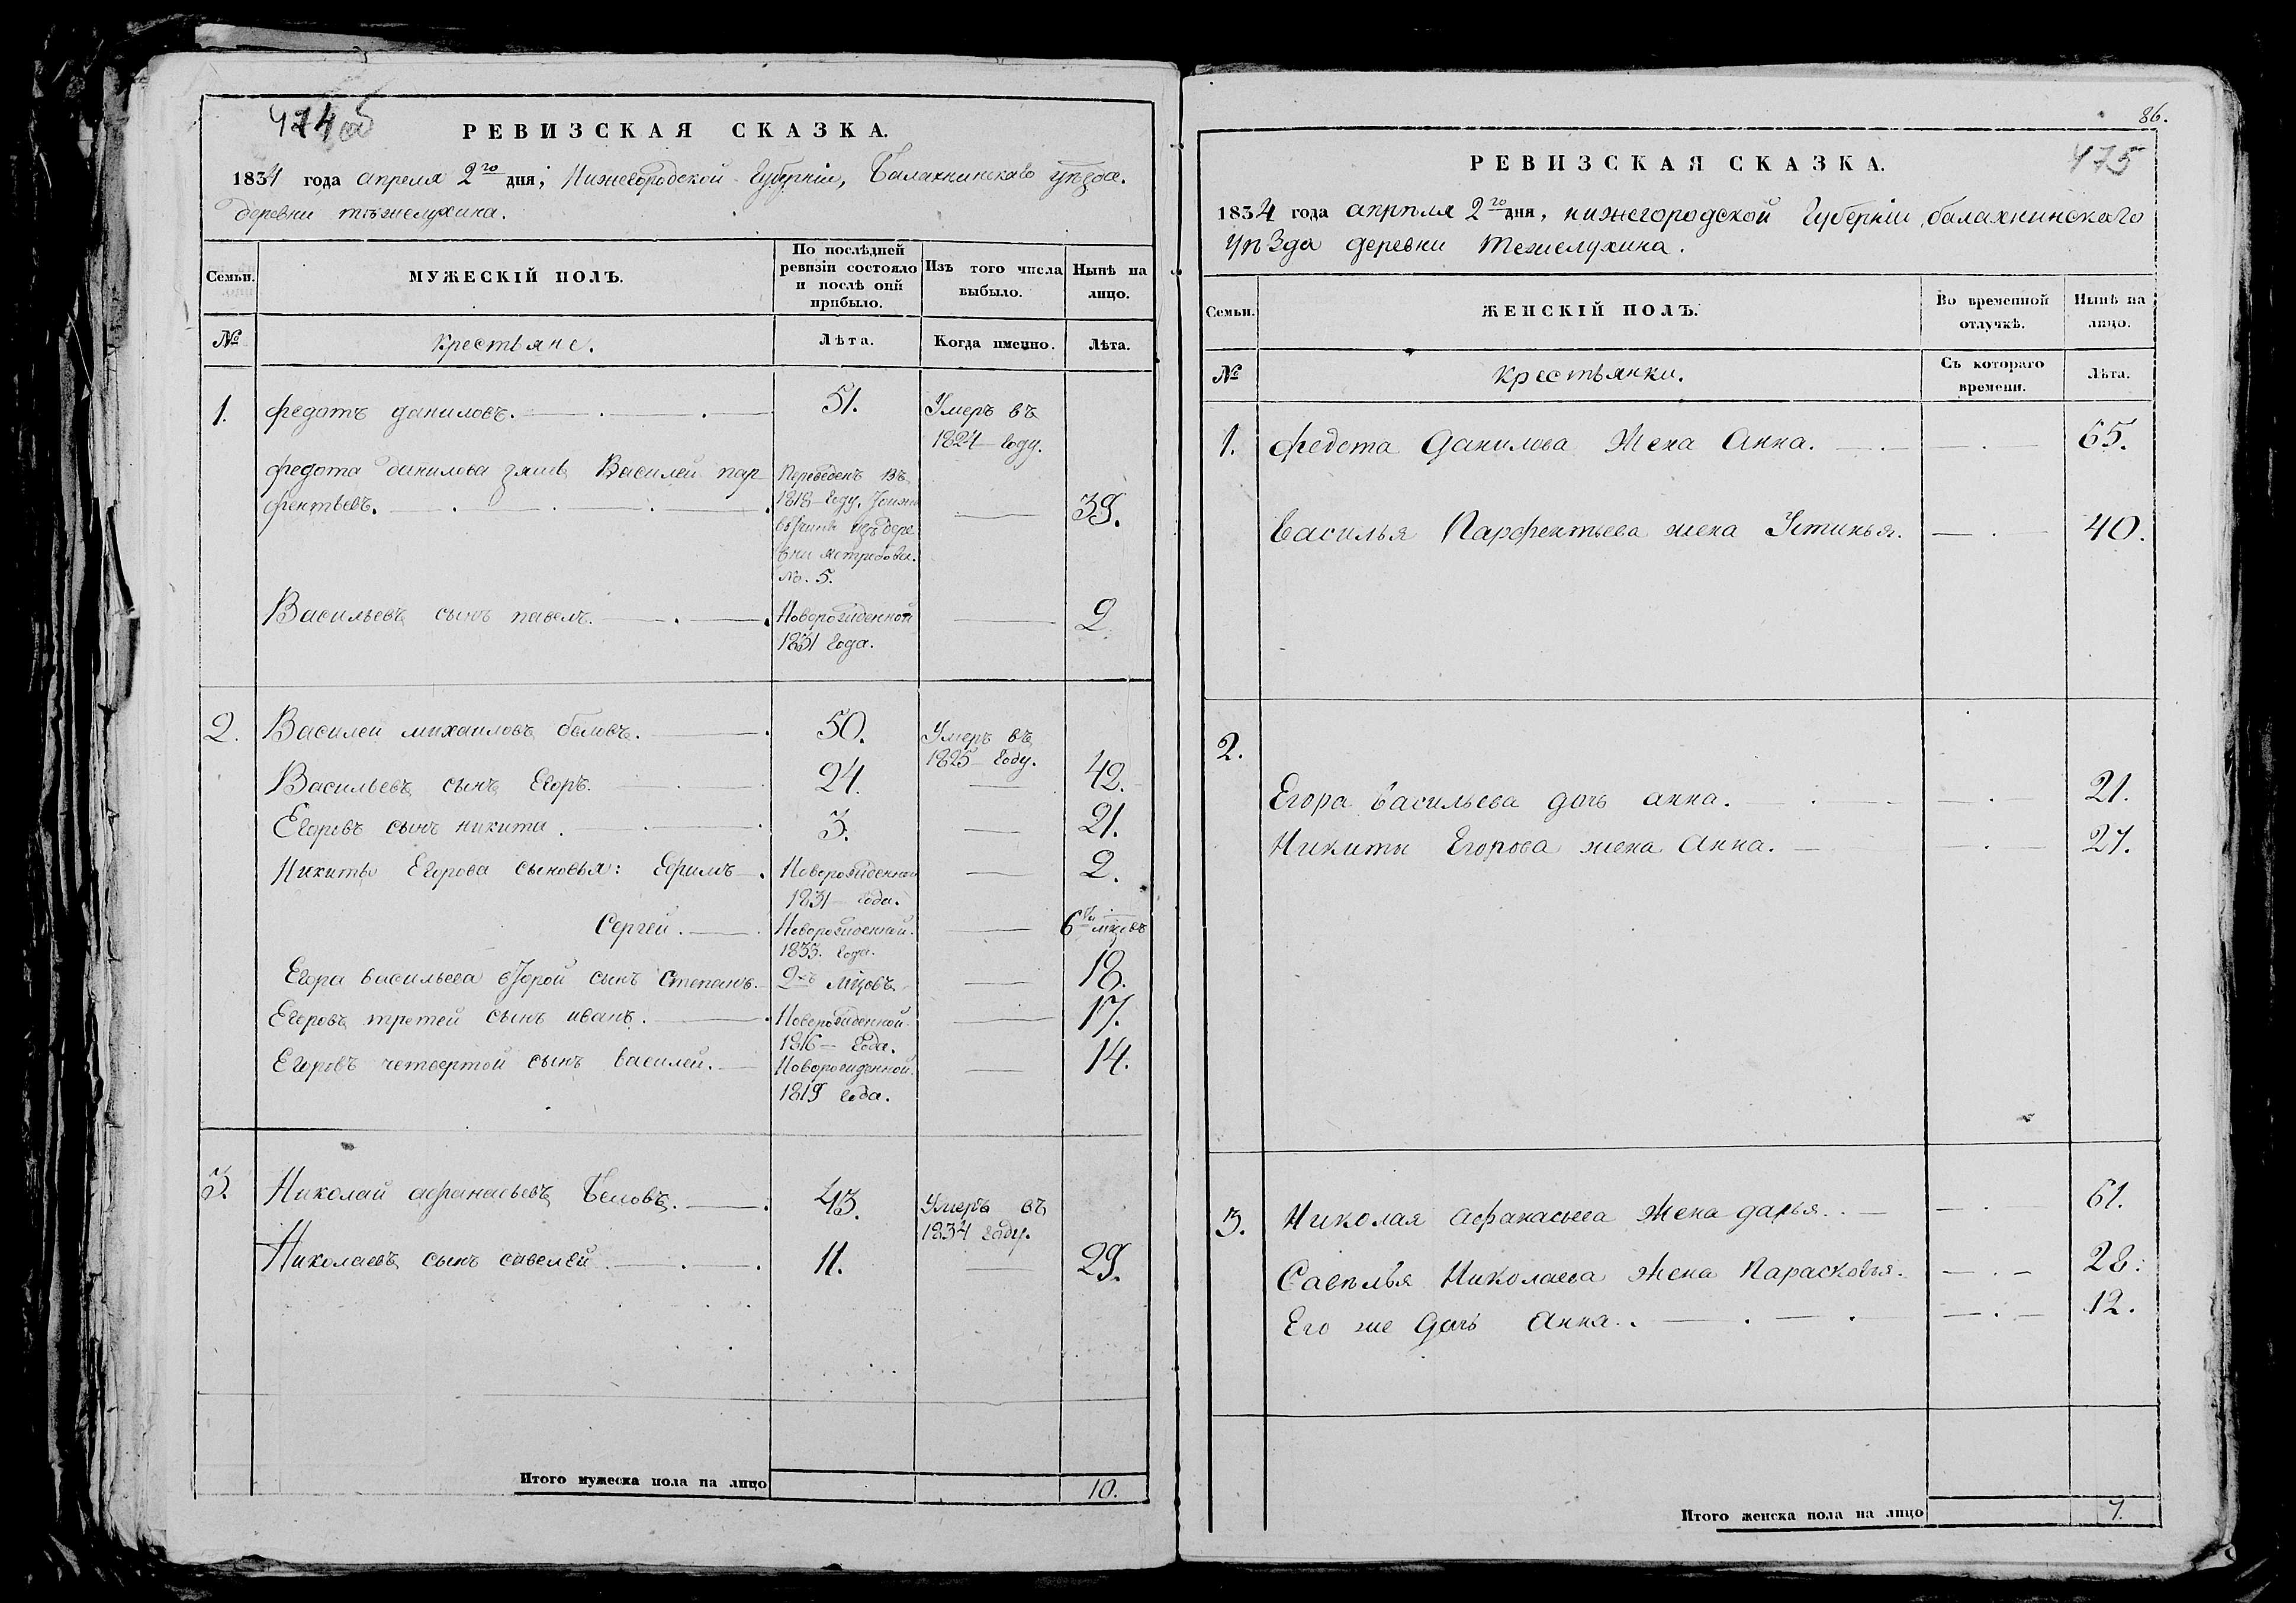 474об
РЕВИЗСКАЯ СКАЗКА.
1834 года апреля 2го дня, Нижегородской Губерніи, Балахнинскаго уѣзда.
деревни тѣжелухина.
Семьи.
МУЖЕСКІЙ ПОЛЪ.
По послѣдней ревизіи состояло и послѣ оной прибыло.
Изъ того числа выбыло.
Нынѣ на лицо.
№
Крестьяне.
Лѣта.
Когда именно.
Лѣта.
1. федотъ даниловъ. 51. Умеръ въ
1824 году.
федота данилова зять Василей пар Переведенъ въ
фентьевъ. 1818 году, 39.
изъ дере
вни
No. 5.
Васильевъ сынъ павелъ. Новорожденной 2
1831 года.
2. Василеи михаиловъ беловъ. 50. Умеръ въ
1825 году.
Васильевъ сынъ Егоръ. 24. 42.
Егоровъ сынъ никита. 3. 21.
Никиты Егорова сыновья: Ефимъ. Новорожденной 2.
1831 года.
Сергей. Новорожденной. 6ти мцовъ
1833. года.
Егора васильева второй сынъ Степанъ. 2хъ мцовъ. 18.
Егоровъ третей сынъ иванъ. Новорожденной 17.
1816 года.
Егоровъ четвертой сынъ василей. Новорожденной. 14.
1819 года.
3. Николай афанасьевъ Беловъ. 43. Умеръ въ
1834 году.
Николаевъ сынъ савелей. 11. 29.
Итого мужеска пола на лицо 10.
86.
475
РЕВИЗСКАЯ СКАЗКА.
1834 года апрѣля 2го дня, нижегородской Губерніи, балахнинскаго
уѣзда деревни Тежелухина.
Семьи.
ЖЕНСКІЙ ПОЛЪ.
Во временной отлучкѣ.
Нынѣ на лицо.
№
Крестьянки.
Съ котораго времени.
Лѣта.
1. Федота Данилова Жена Анна. 65.
Василья Парфентьева жена Устинья. 40.
2.
Егора васильева дочь анна. 21.
Никиты Егорова жена Анна. 27.
3. Николая Афанасьева Жена дарья. 61.
Савѣлья Николаева Жена Парасковья. 28.
Его же Дочь Анна. 12.
Итого женска пола на лицо 7.